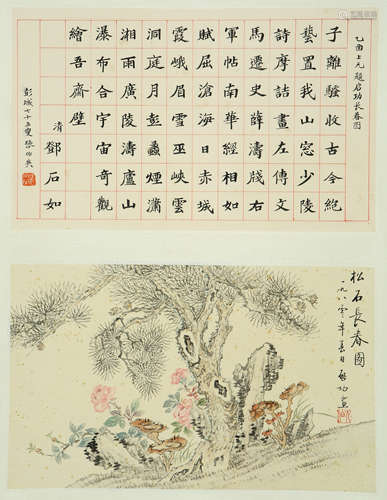 乙酉上元題啟功長春圖
子離騷收古今絕
藝置我山窓少陵
詩摩詰畫左傳文
馬遷史薛濤牋右
軍帖南華經相如
賦屈滄海日赤城
霞峨眉雪巫峽雲
洞庭月彭蠡煙瀟
湘雨廣陵濤廬山
瀑布合宇宙奇觀
繪吾齋壁
清鄧石如
彭城七十五叟張伯英
松石長春圖
一九八〇年春日啟功畫